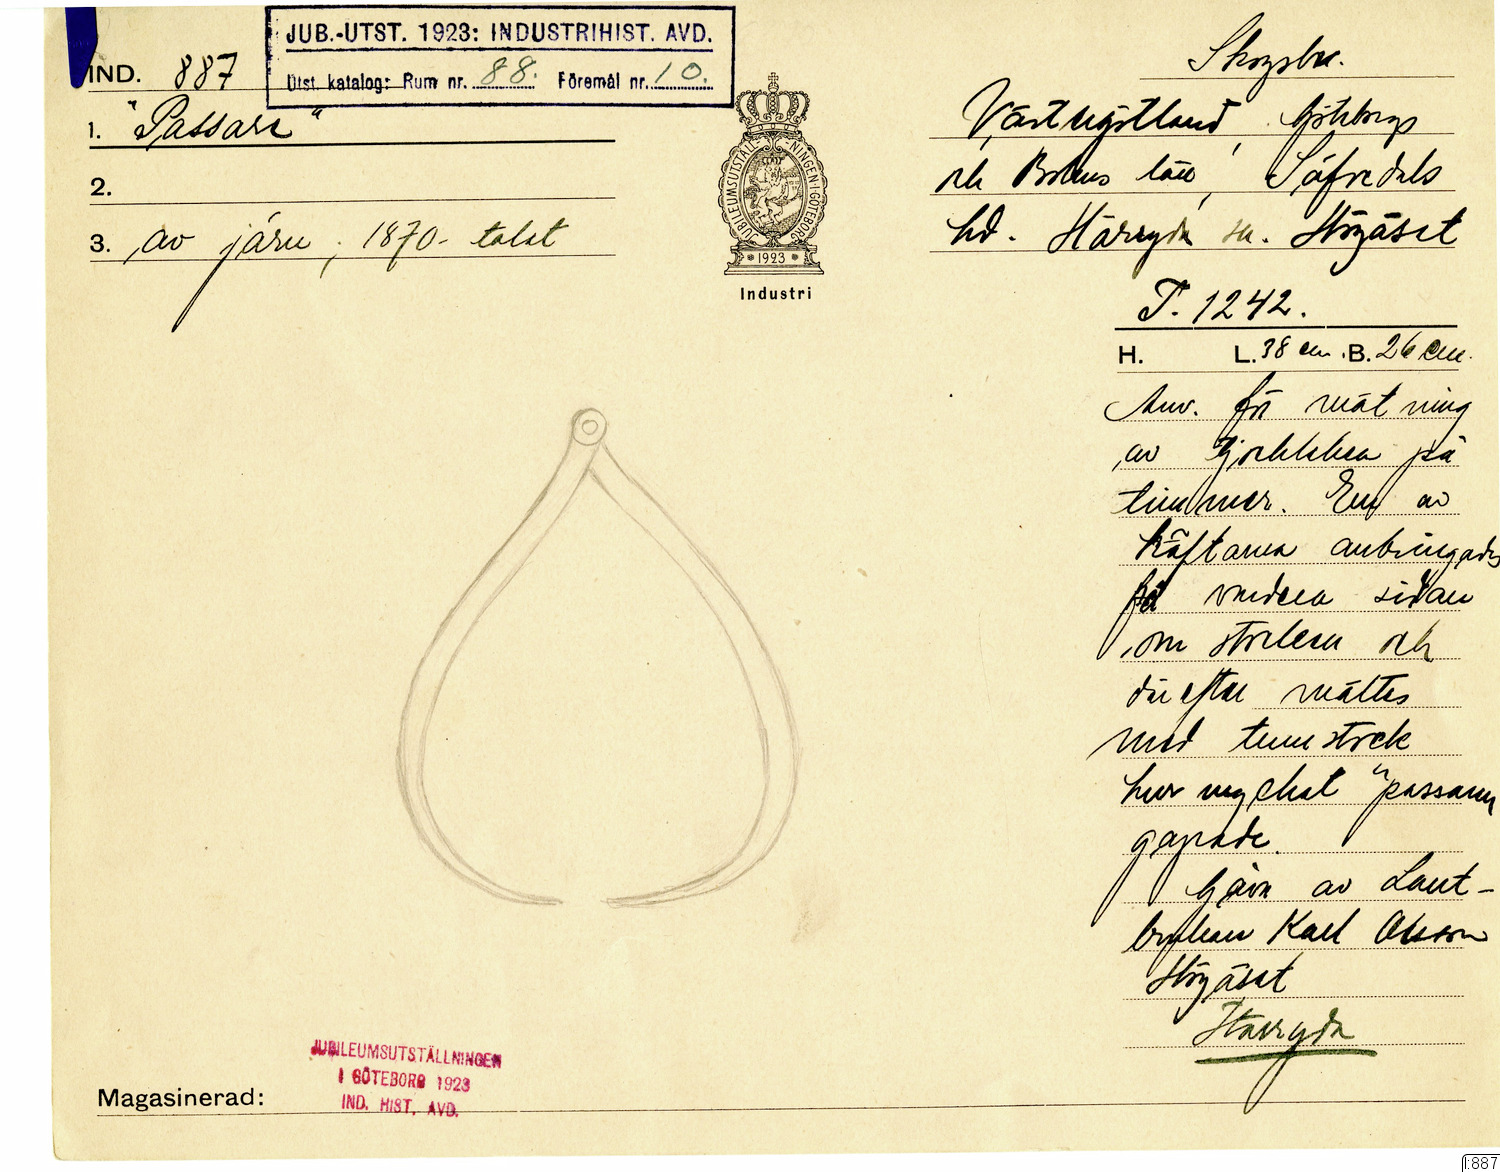 JUB.-UTST. 1923: INDUSTRIHIST. AVD.
Utst. katalog: Rum nr. 88. Föremål nr. 10.
IND. 887
1. "Passare"
2.
3. av järn, 1870-talet
JUBILEUMSUTSTÄLLNINGEN I GÖTEBORG
1923
Industri
Skogsbr.
Västergötland, Göteborgs
och Bohus län, Säfvedals
hd. Härryda sn. Högåset
T. 1242.
H. L. 38 cm. B. 26 cm.
Anv. för mätning
av tjockleken på
timmer. En av
käftarna anbringades
på vardera sidan
om stocken och
därefter mättes
med tumstock
hur mycket "passaren
gapade.
Gåva av Lant-
brukare Karl Olsson
Högåset
Härryda
JUBILEUMSUTSTÄLLNINGEN
I GÖTEBORG 1923
IND. HIST. AVD.
Magasinerad:
I:887